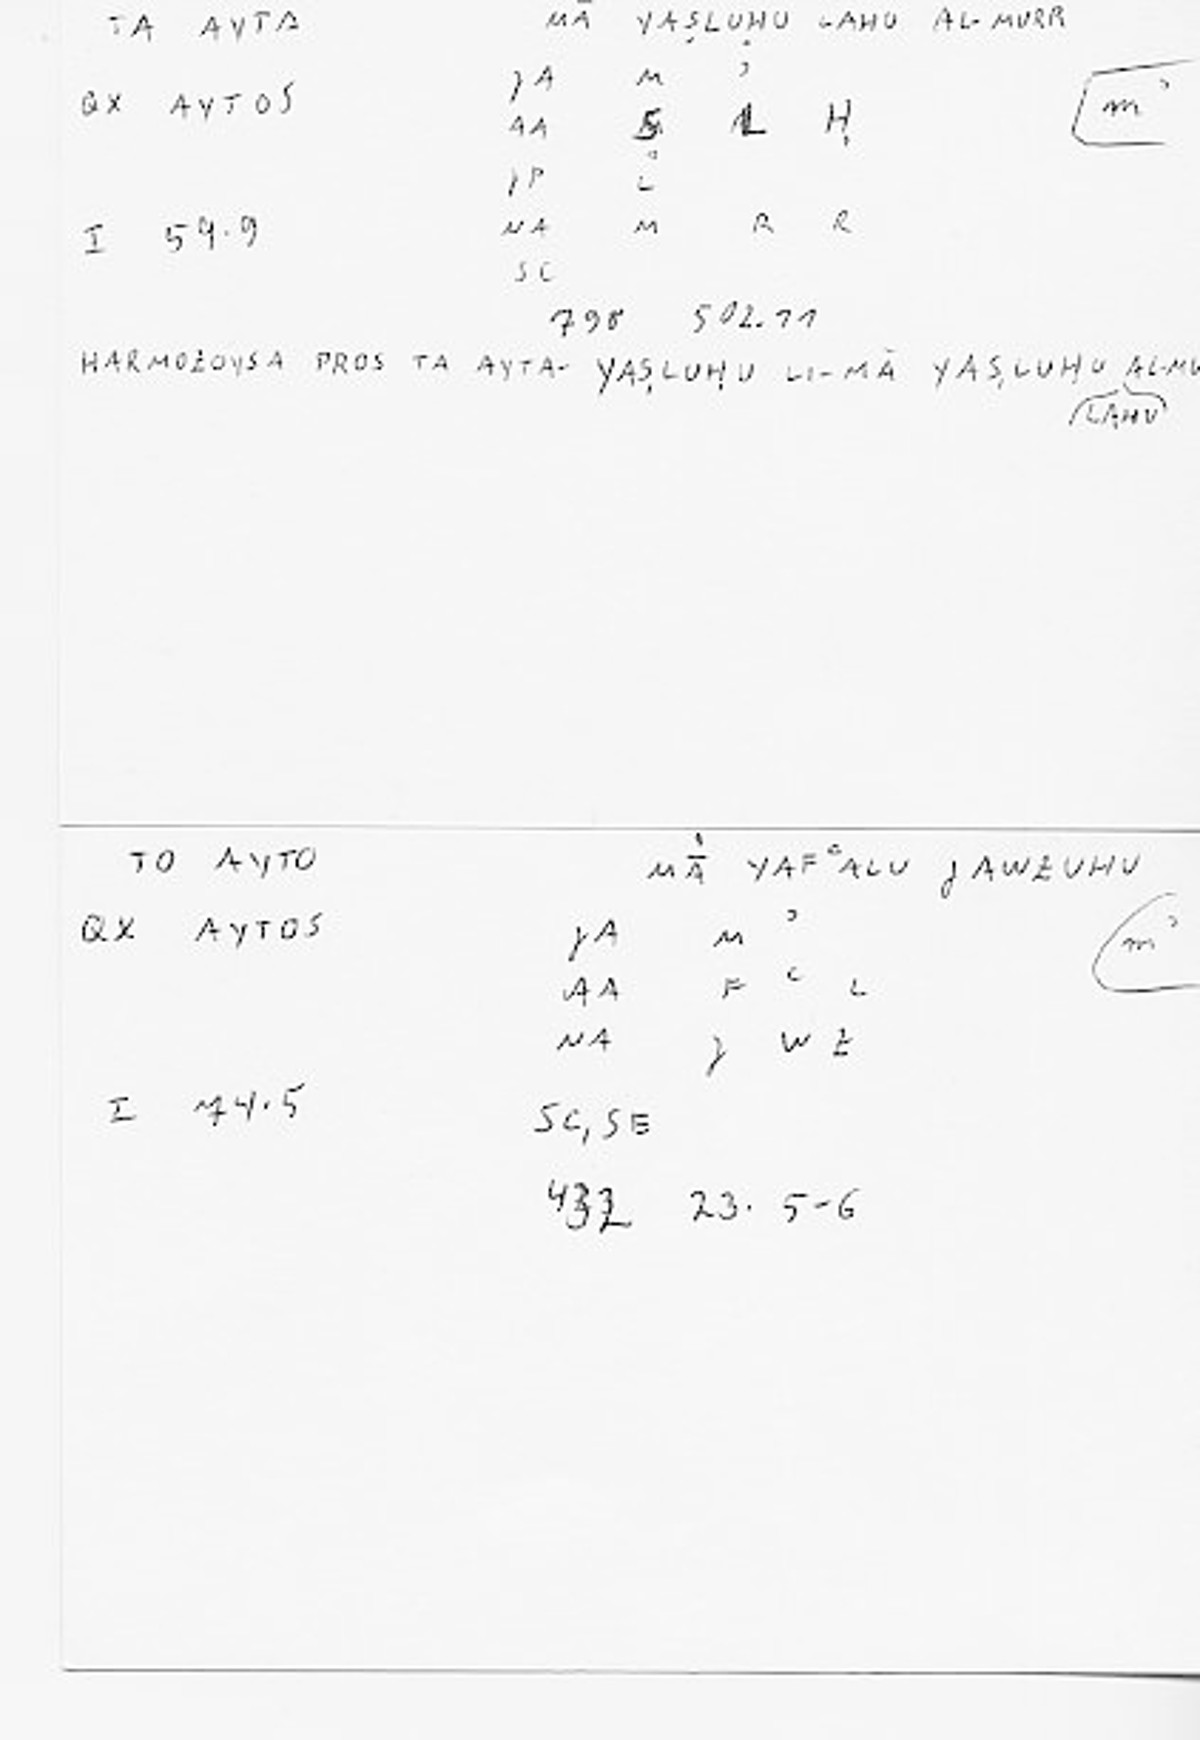 TA AYTA MĀ YAṢLUḤU LAHU AL-MURR
QX AYTOS JA M ʾ
mʾ
AA Ṣ L Ḥ
JP L
I 59.9 NA M R R
SC
798 502.11
HARMOZOYSA PROS TA AYTA- YAṢLUḤU LI-MĀ YAṢLUḤU AL-MU
LAHU
TO AYTO MĀ YAFʿALU JAWZUHU
QX AYTOS JA M ʾ
mʾ
AA F ʿ L
NA J W Z
I 74.5 SC, SE
432 23. 5-6